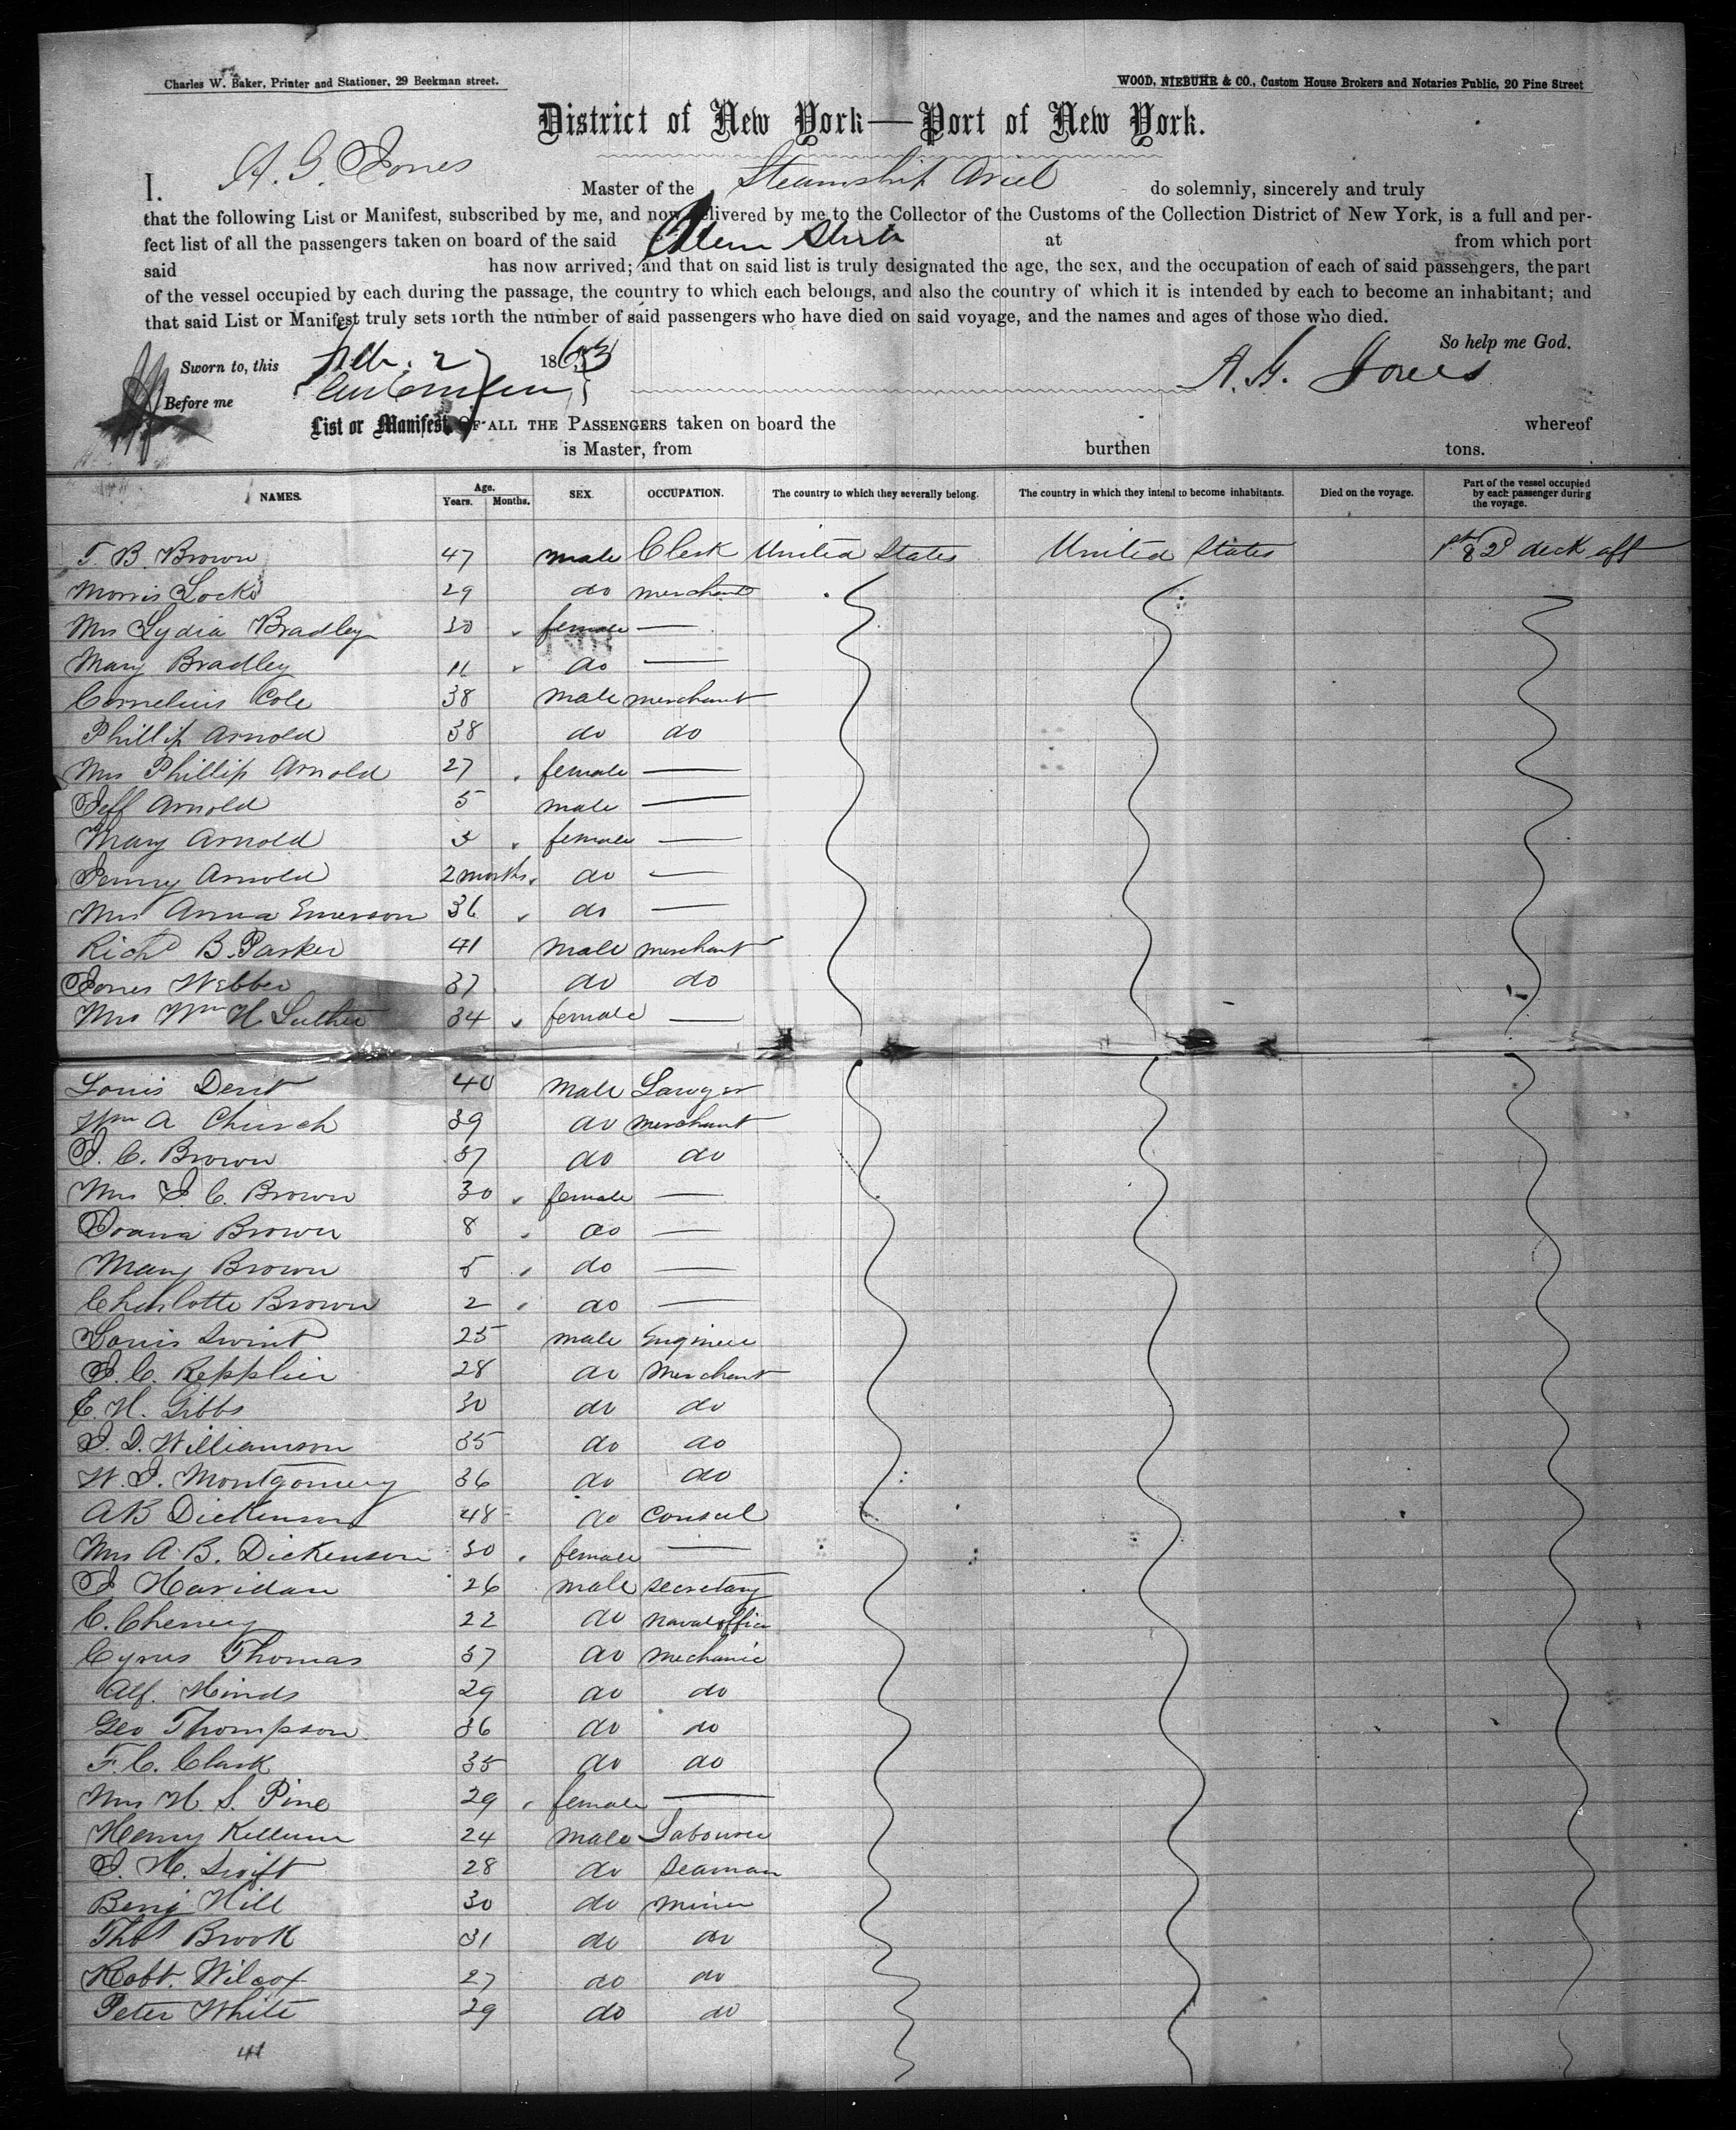 Charles W. Baker, Printer and Stationer, 29 Beekman street.
WOOD, NIEBUHR & CO., Custom House Brokers and Notaries Public, 20 Pine Street
District of New York—Port of New York.
I. A. G. Jones Master of the Steamship Ariel do solemnly, sincerely and truly
that the following List or Manifest, subscribed by me, and now delivered by me to the Collector of the Customs of the Collection District of New York, is a full and per-
fect list of all the passengers taken on board of the said at from which port
said has now arrived; and that on said list is truly designated the age, the sex, and the occupation of each of said passengers, the part
of the vessel occupied by each during the passage, the country to which each belongs, and also the country of which it is intended by each to become an inhabitant; and
that said List or Manifest truly sets forth the number of said passengers who have died on said voyage, and the names and ages of those who died.
So help me God.
Sworn to, this Feb. 27 1863
A. G. Jones
Before me
List or Manifest OF ALL THE PASSENGERS taken on board the whereof
is Master, from burthen tons.
NAMES. Age. Years. Months. SEX. OCCUPATION. The country to which they severally belong. The country in which they intend to become inhabitants. Died on the voyage. Part of the vessel occupied by each passenger during the voyage.
T. B. Brown 47 male Clerk United States United States 1st & 2d deck aft
Morris Locke 29 do merchant
Mrs Lydia Bradley 30 female —
Mary Bradley 11 do —
Cornelius Cole 38 male merchant
Phillip Arnold 38 do do
Mrs Phillip Arnold 27 female —
Jeff Arnold 5 male —
Mary Arnold 3 female —
Jenny Arnold 2 months do —
Mrs Anna Emerson 36 do —
Richd B. Parker 41 male merchant
Jones Webber 37 do do
Mrs Wm H Luther 34 female —
Louis Dent 40 male Lawyer
Wm A Church 39 do merchant
J. C. Brown 37 do do
Mrs J C. Brown 30 female —
Joana Brown 8 do —
Mary Brown 5 do —
Charlotte Brown 2 do —
Louis Swint 25 male Engineer
J. C. Repplier 28 do Merchant
E. H. Gibbs 30 do do
J. D. Williamson 35 do do
W. J. Montgomery 36 do do
A B Dickenson 48 do Consul
Mrs A. B. Dickenson 30 female —
J Haridan 26 male secretary
C. Cheney 22 do naval officer
Cyrus Thomas 37 do mechanic
Alf. Hinds 29 do do
Geo Thompson 36 do do
F. C. Clark 35 do do
Mrs H. S. Pine 29 female —
Henry Kellum 24 male Labourer
J. H. Swift 28 do seaman
Benj Hill 30 do miner
Thos Brook 31 do do
Robt. Wilcox 27 do do
Peter White 29 do do
41